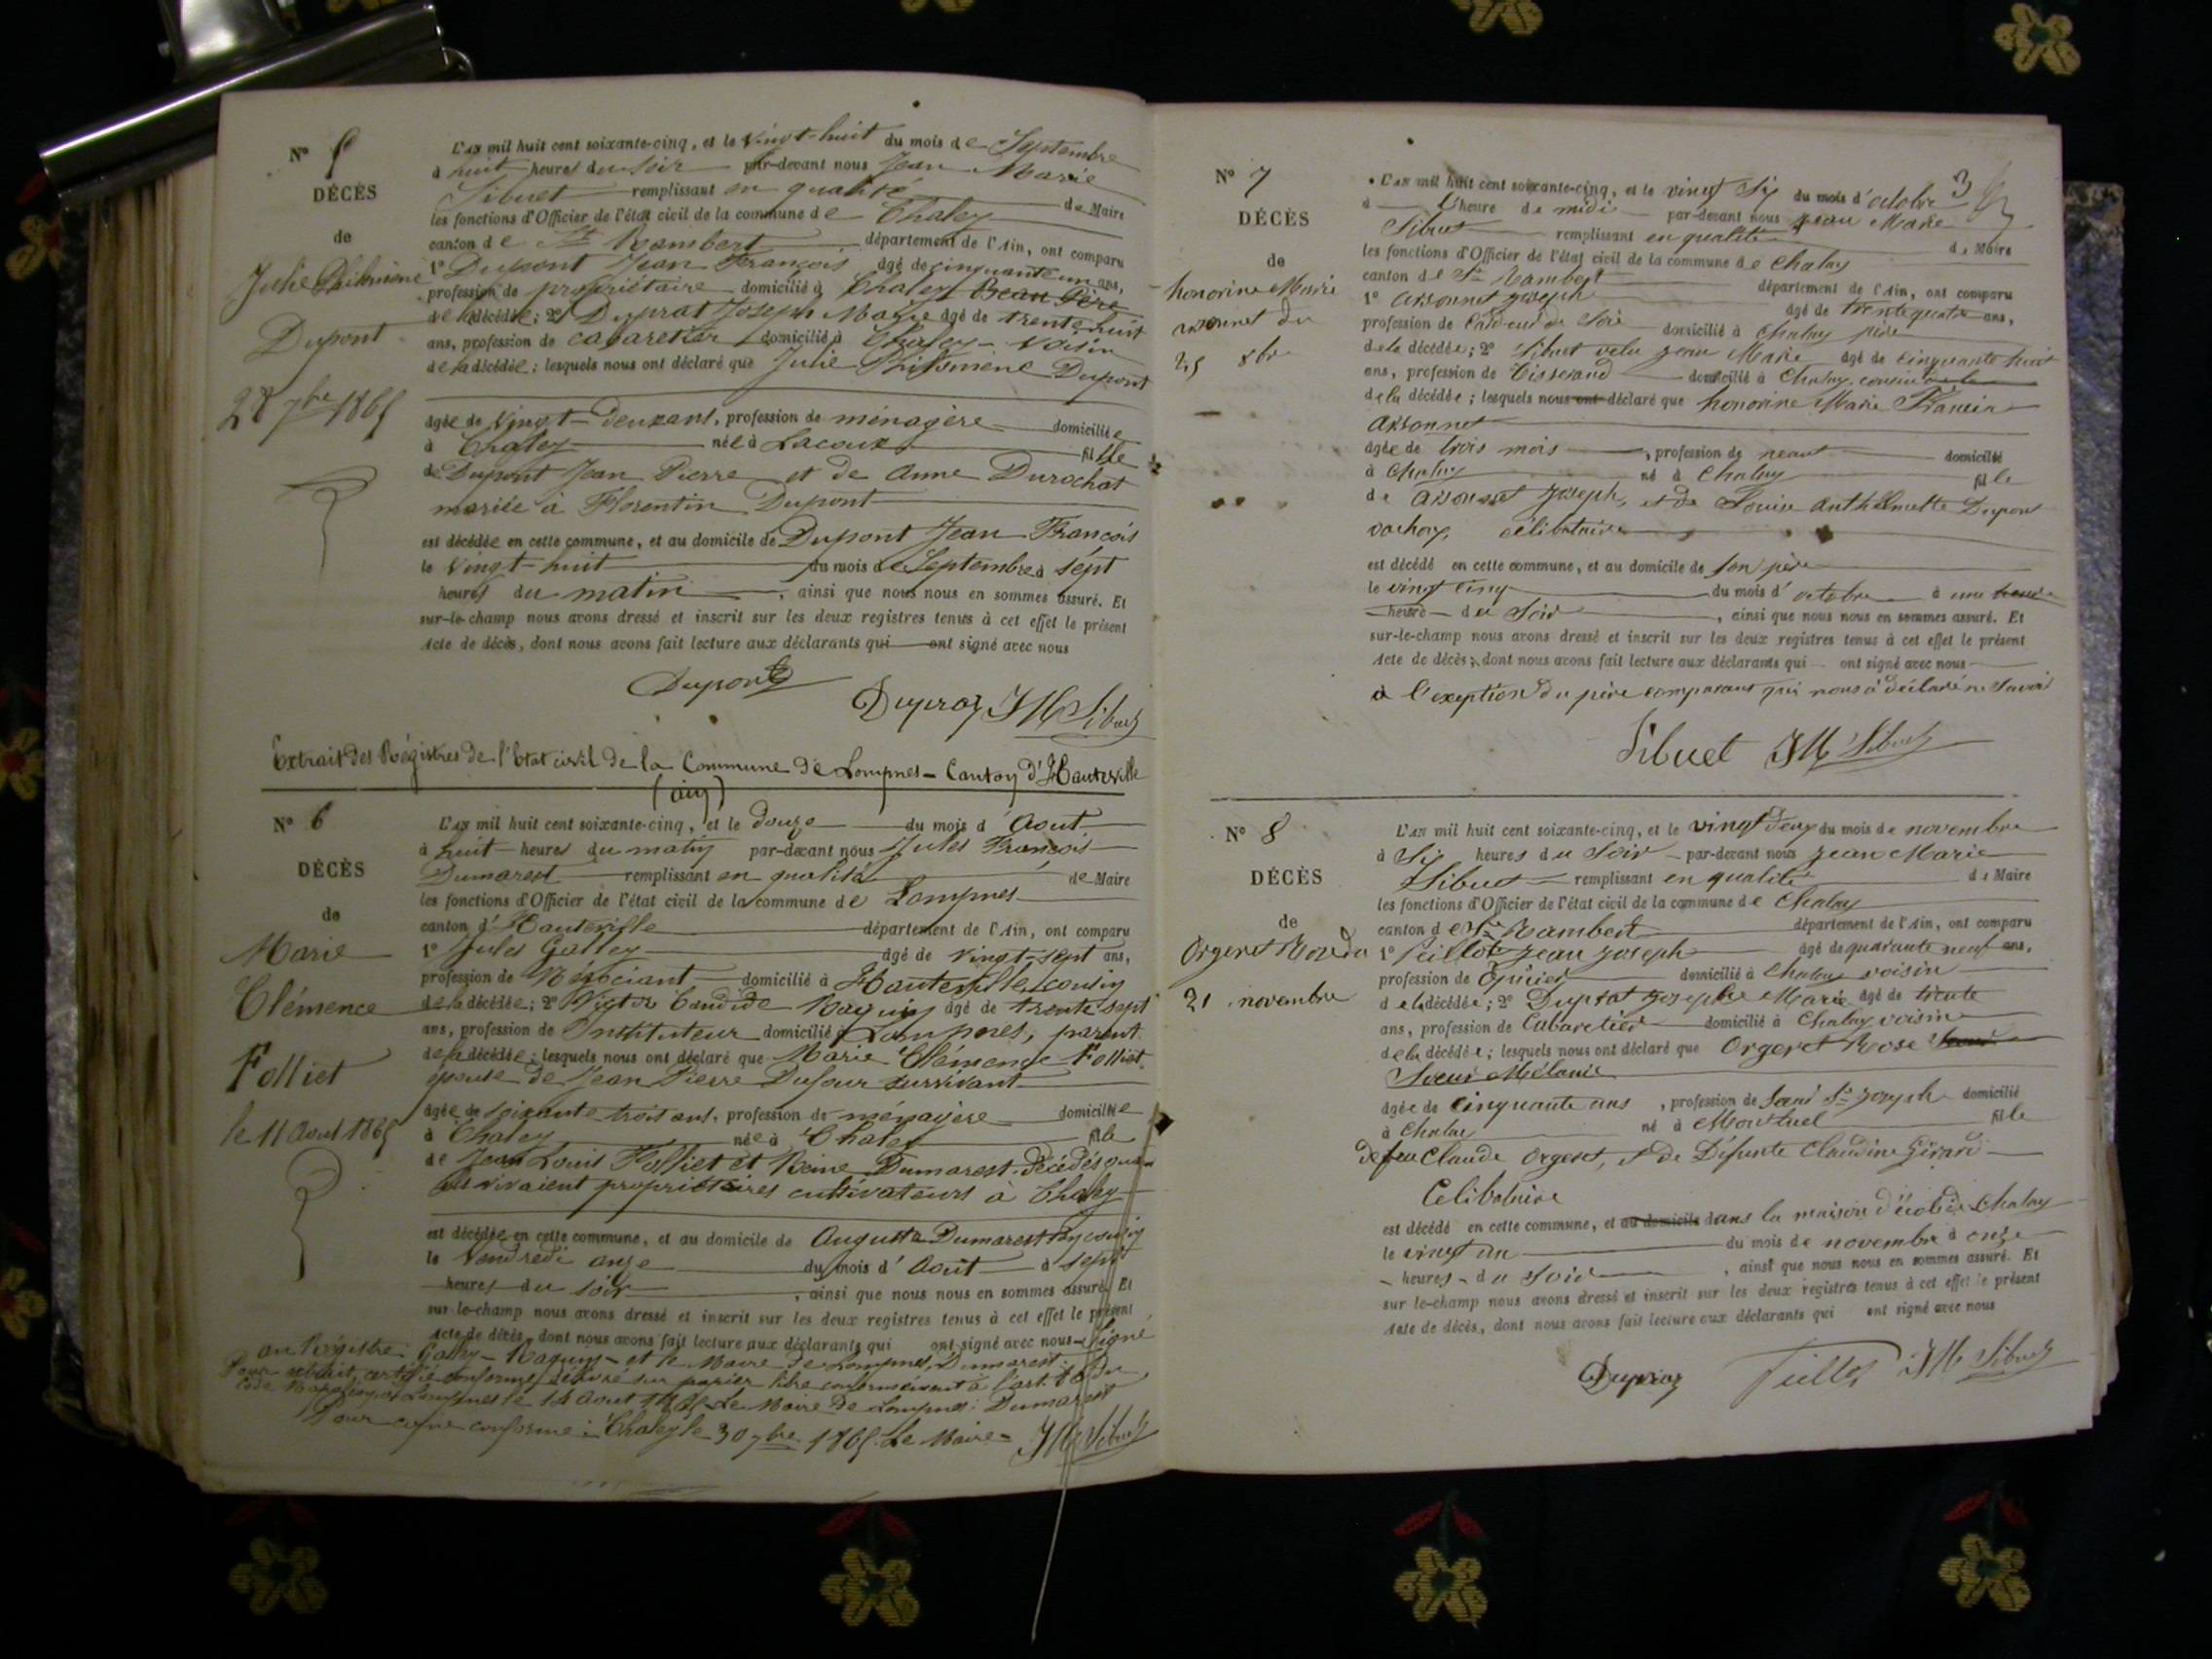 N° 5
DÉCÈS
de
Julie Philomène
Dupont
28 7bre 1865
L'AN mil huit cent soixante-cinq, et le vingt-huit du mois de Septembre
à huit heures du soir par-devant nous Jean Marie
Sibuet remplissant en qualité de Maire
les fonctions d'Officier de l'état civil de la commune de Chaley
canton de St Rambert département de l'Ain, ont comparu
1° Dupont Jean François âgé de cinquante un ans,
profession de propriétaire domicilié à Chaley Beau Père
de la décédée; 2° Duprat Joseph Marie âgé de trente huit
ans, profession de cabaretier domicilié à Chaley - Voisin
de la décédée; lesquels nous ont déclaré que Julie Philomène Dupont
âgée de vingt-deux ans, profession de ménagère domiciliée
à Chaley née à Lacoux fille
de Dupont Jean Pierre et de Anne Durochat
mariée à Florentin Dupont
est décédée en cette commune, et au domicile de Dupont Jean François
le vingt-huit du mois de Septembre à sept
heures du matin, ainsi que nous nous en sommes assuré. Et
sur-le-champ nous avons dressé et inscrit sur les deux registres tenus à cet effet le présent
Acte de décès, dont nous avons fait lecture aux déclarants qui ont signé avec nous
Dupont
Dupraz JM Sibuet
Extrait des Régistres de l'Etat civil de la Commune de Lompnes - Canton d'Hauteville
(ain)
N° 6
DÉCÈS
de
Marie
Clémence
Folliet
le 11 Aout 1865
L'AN mil huit cent soixante-cinq, et le douze du mois d'Aout
à huit heures du matin par-devant nous Jules François
Dumarest remplissant en qualité de Maire
les fonctions d'Officier de l'état civil de la commune de Lompnes
canton d'Hauteville département de l'Ain, ont comparu
1° Jules Galley âgé de vingt-sept ans,
profession de Négociant domicilié à Hauteville cousin
de la décédée; 2° Victor Candide Raquin âgé de trente sept
ans, profession de Instituteur domicilié à Lompnes, parent
de la décédée; lesquels nous ont déclaré que Marie Clémence Folliet
épouse de Jean Pierre Dufour survivant
âgée de soixante-trois ans, profession de ménagère domiciliée
à Chaley née à Chaley fille
de Jean Louis Folliet et Reine Dumarest décédés quand
ils vivaient propriétaires cultivateurs à Chaley
est décédée en cette commune, et au domicile de Auguste Dumarest cousin
le Vendredi onze du mois d'Août à sept
heures du soir, ainsi que nous nous en sommes assuré. Et
sur-le-champ nous avons dressé et inscrit sur les deux registres tenus à cet effet le présent
Acte de décès, dont nous avons fait lecture aux déclarants qui ont signé avec nous - Signé
au Régistre: Galley - Raquin - et le Maire de Lompnes, Dumarest.
Pour extrait certifié conforme délivré sur papier libre conformément à l'art. 80 du
Code Napoléon, à Lompnes le 14 Aout 1865. Le Maire de Lompnes: Dumarest
Pour copie conforme: Chaley le 30 7bre 1865. Le Maire = JM Sibuet
3
N° 7
DÉCÈS
de
honorine Marie
du
25 8bre
L'AN mil huit cent soixante-cinq, et le vingt Six du mois d'octobre
à heure de midi par-devant nous Jean Marie
Sibuet remplissant en qualité de Maire
les fonctions d'Officier de l'état civil de la commune de Chaley
canton de St Rambert département de l'Ain, ont comparu
1° Joseph âgé de trente quatre ans,
profession de Cardeur de Soie domicilié à Chaley père
de la décédée; 2° Sibuet Jean Marie âgé de cinquante huit
ans, profession de Tisserand domicilié à Chaley cousin
de la décédée; lesquels nous ont déclaré que honorine Marie
âgée de trois mois, profession de neant domicilié
à Chaley né à Chaley fille
de Joseph, et de Louise Anthelmette Dupont
célibataire
est décédé en cette commune, et au domicile de son père
le vingt cinq du mois d'octobre à une heure
heure du Soir, ainsi que nous nous en sommes assuré. Et
sur-le-champ nous avons dressé et inscrit sur les deux registres tenus à cet effet le présent
Acte de décès; dont nous avons fait lecture aux déclarants qui ont signé avec nous
à l'exeption du père comparant qui nous à déclaré ne Savoir
Sibuet JM Sibuet
N° 8
DÉCÈS
de
Orgeret Rose du
21 novembre
L'AN mil huit cent soixante-cinq, et le vingt deux du mois de novembre
à Six heures du Soir par-devant nous Jean Marie
Sibuet remplissant en qualité de Maire
les fonctions d'Officier de l'état civil de la commune de Chaley
canton de St Rambert département de l'Ain, ont comparu
1° Peillot Jean Joseph âgé de quarante neuf ans,
profession de Epicier domicilié à Chaley voisin
de la décédée; 2° Duprat Joseph Marie âgé de trente
ans, profession de Cabaretier domicilié à Chaley voisin
de la décédée; lesquels nous ont déclaré que Orgeret Rose
Soeur Mélanie
âgée de Cinquante ans, profession de Soeur St Joseph domicilié
à Chaley né à Montluel fille
de feu Claude Orgeret, et de Défunte Claudine Girard
Celibataire
est décédé en cette commune, et au domicile dans la maison d'école de Chaley
le vingt un du mois de novembre à onze
heures du Soir, ainsi que nous nous en sommes assuré. Et
sur-le-champ nous avons dressé et inscrit sur les deux registres tenus à cet effet le présent
Acte de décès, dont nous avons fait lecture aux déclarants qui ont signé avec nous
Dupraz Peillot JM Sibuet